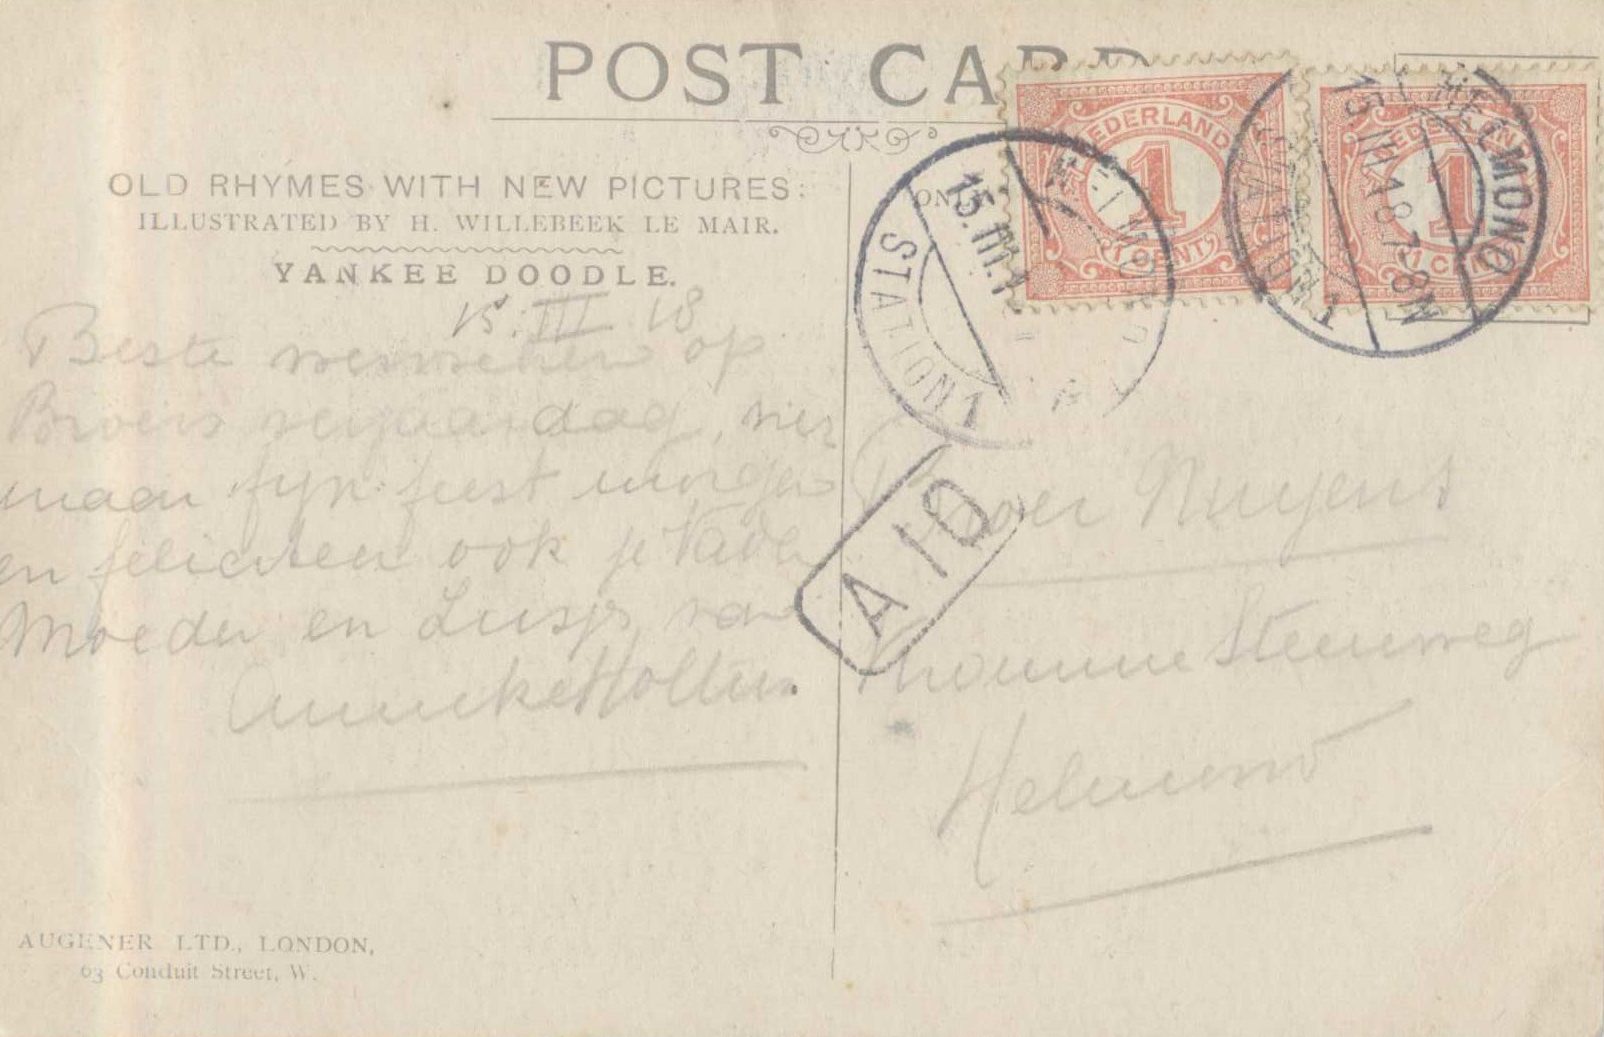 POST CARD
OLD RHYMES WITH NEW PICTURES:
ILLUSTRATED BY H. WILLEBEEK LE MAIR.
YANKEE DOODLE.
15. III 18
Beste wenschen op
Broers verjaardag, vier
maar fijn feest morgen
en feliciteer ook je Vader
Moeder en Lusje, van
Anneke Holten.
AUGENER LTD., LONDON,
63 Conduit Street, W.
NEDERLAND
1
1 CENT
NEDERLAND
1
1 CENT
HELMOND
15.III.1
STATION 1
HELMOND
15 III 18 7-8N
STATION 1
A 10
Broer Nuyens
Steenweg
Helmond